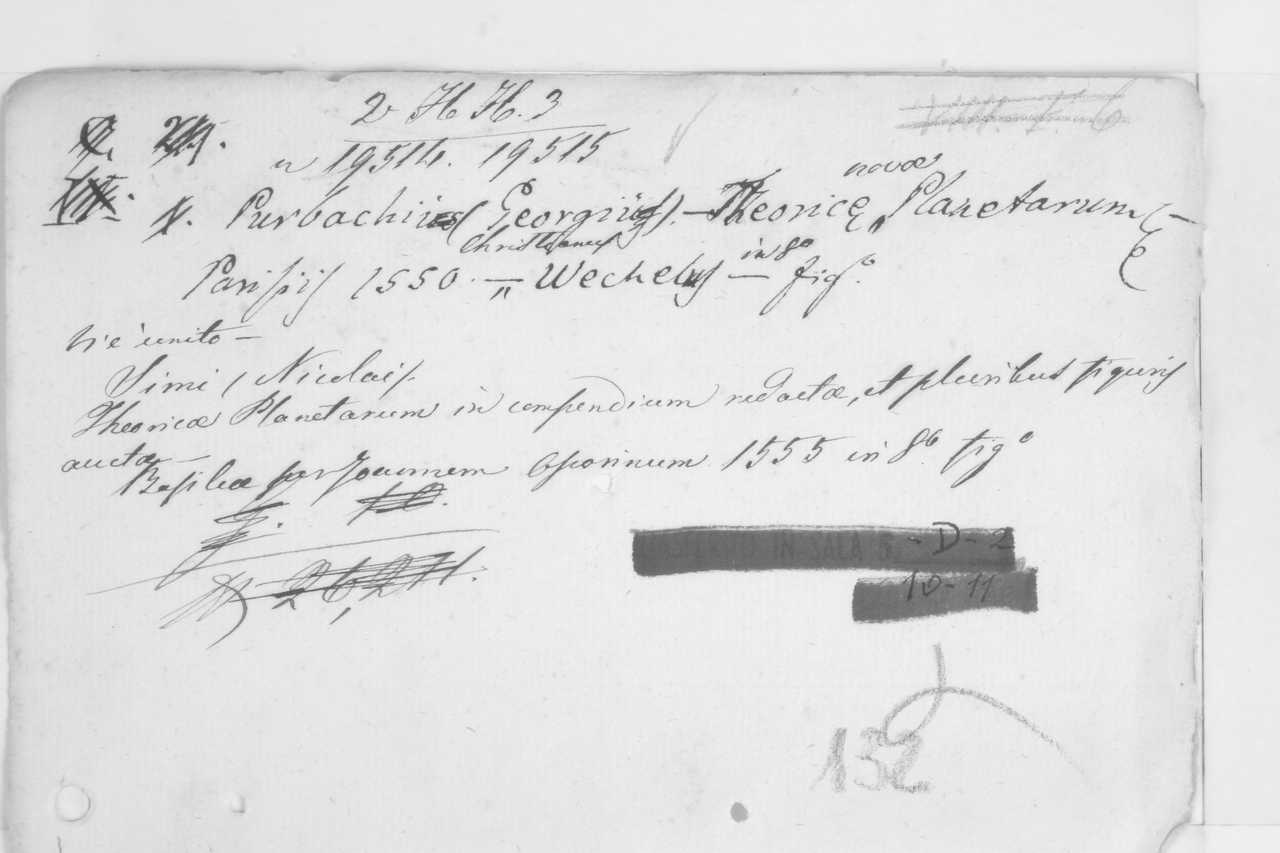 2 H H. 3
n 19514. 19515
1. Purbachii (Georgii). — Theoricę novæ Planetarum —
Parisiis 1550. — Christianus Wechelus — in 8° fig.°
Vi è unito —
Simi (Nicolai).
Theoricæ Planetarum in compendium redactæ, et pluribus figuris
auctæ —
Basileæ per Joannem Oporinum 1555 in 8° fig°
IN SALA 5 - D - 2
10 - 11
132